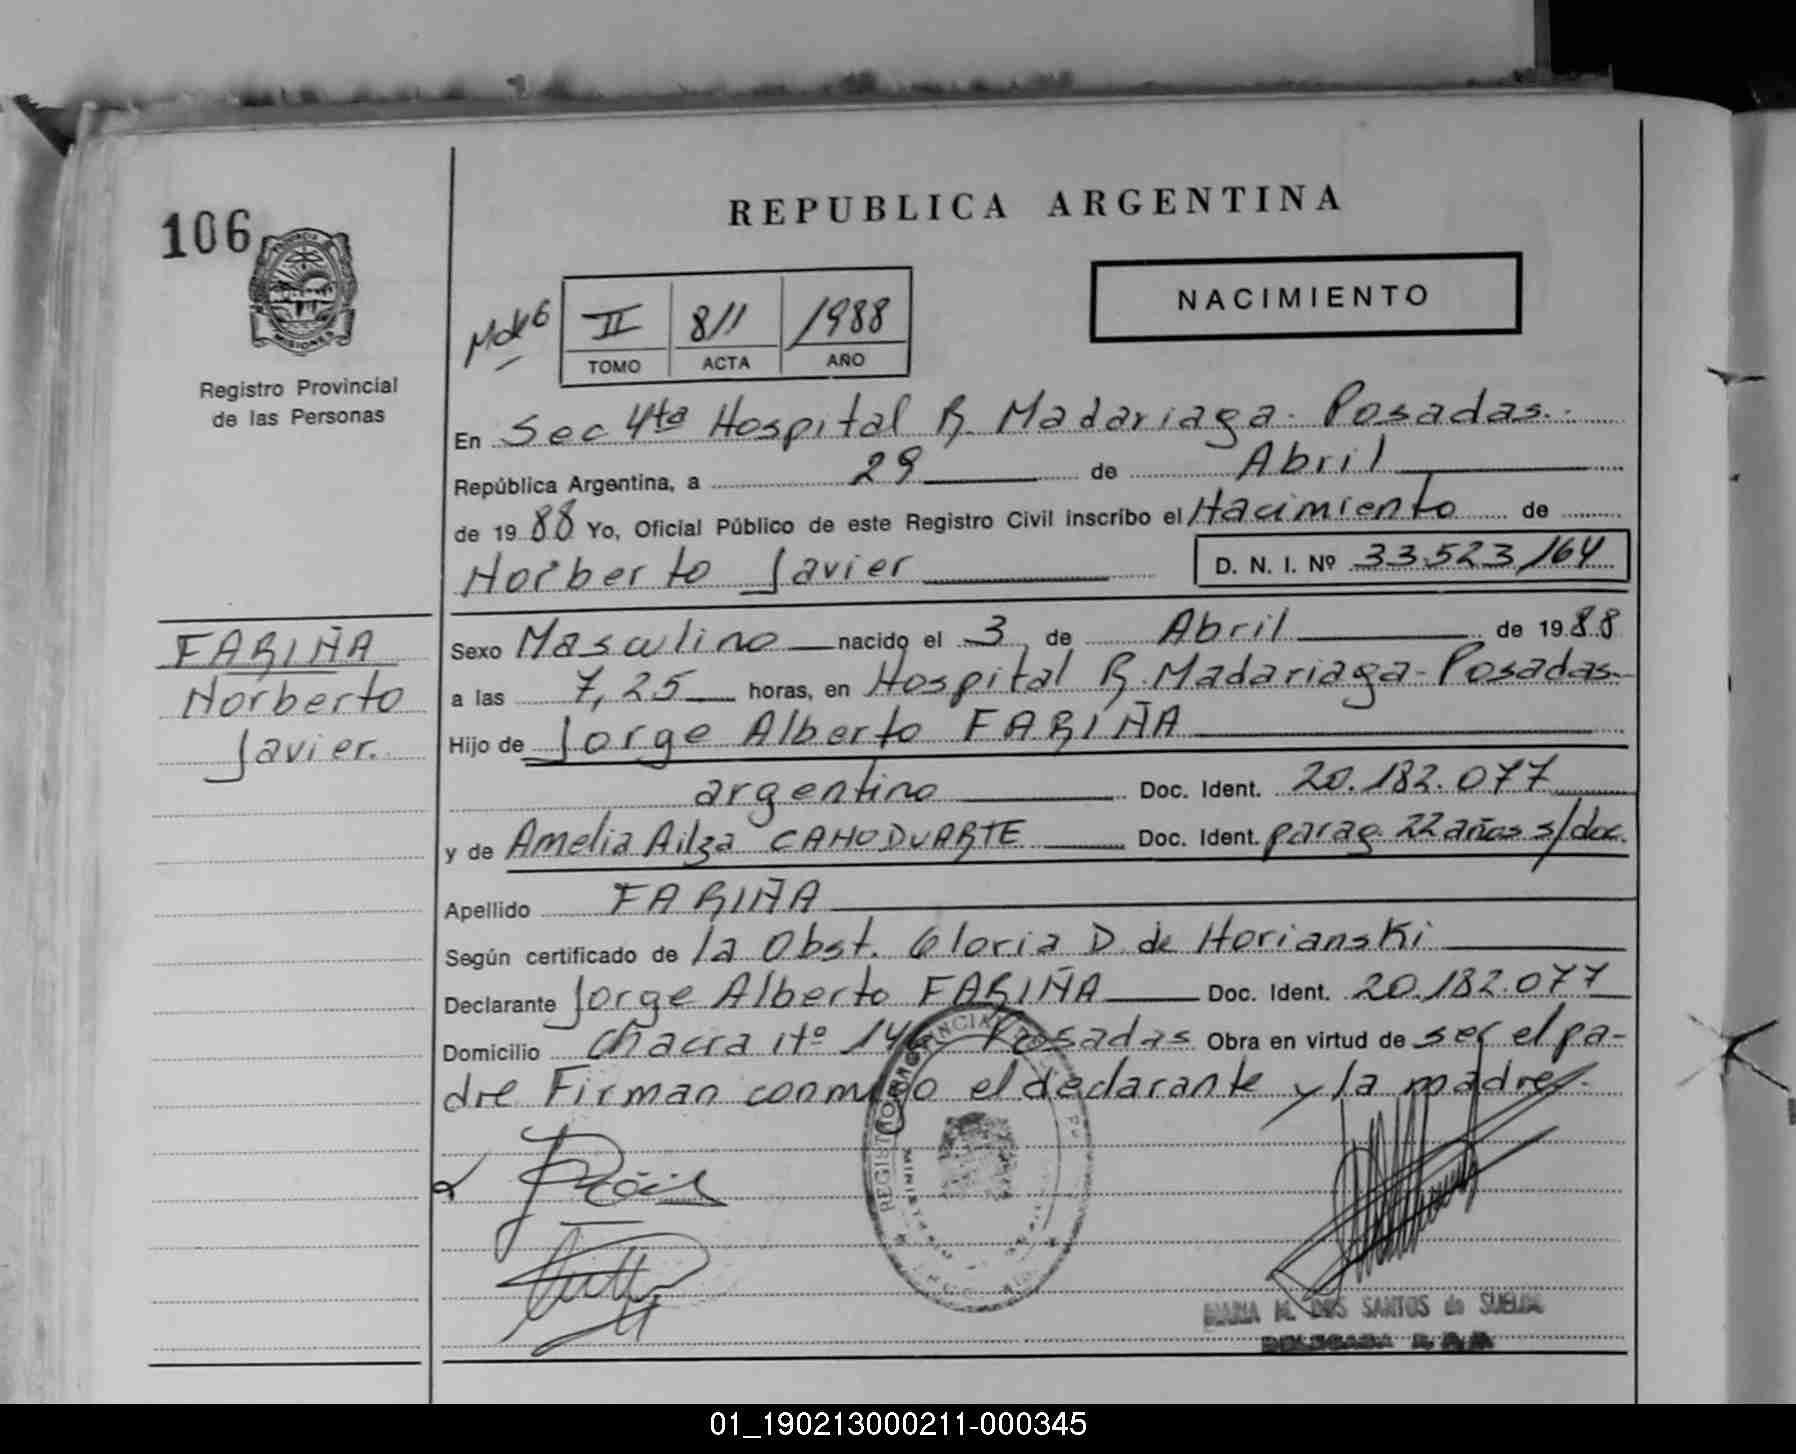 106
REPUBLICA ARGENTINA
PROVINCIA DE
MISIONES
Registro Provincial
de las Personas
II 811 1988
TOMO ACTA AÑO
NACIMIENTO
En Sec 4ta Hospital R. Madariaga - Posadas.
República Argentina, a 29 de Abril
de 1988 Yo, Oficial Público de este Registro Civil inscribo el Nacimiento de
Norberto Javier D. N. I. Nº 33.523,164
FARIÑA
Norberto
Javier.
Sexo Masculino nacido el 3 de Abril de 1988
a las 7,25 horas, en Hospital R. Madariaga - Posadas
Hijo de Jorge Alberto FARIÑA
argentino Doc. Ident. 20.182.077
y de Amelia Ailza CANO DUARTE Doc. Ident. parag. 22 años s/doc.
Apellido FARIÑA
Según certificado de la Obst. Gloria D. de Horianski
Declarante Jorge Alberto FARIÑA Doc. Ident. 20.182.077
Domicilio Chacra Nº Posadas Obra en virtud de ser el pa-
dre Firman conmigo el declarante y la madre.
MARIA M. DOS SANTOS de
DELEGADA
01_190213000211-000345